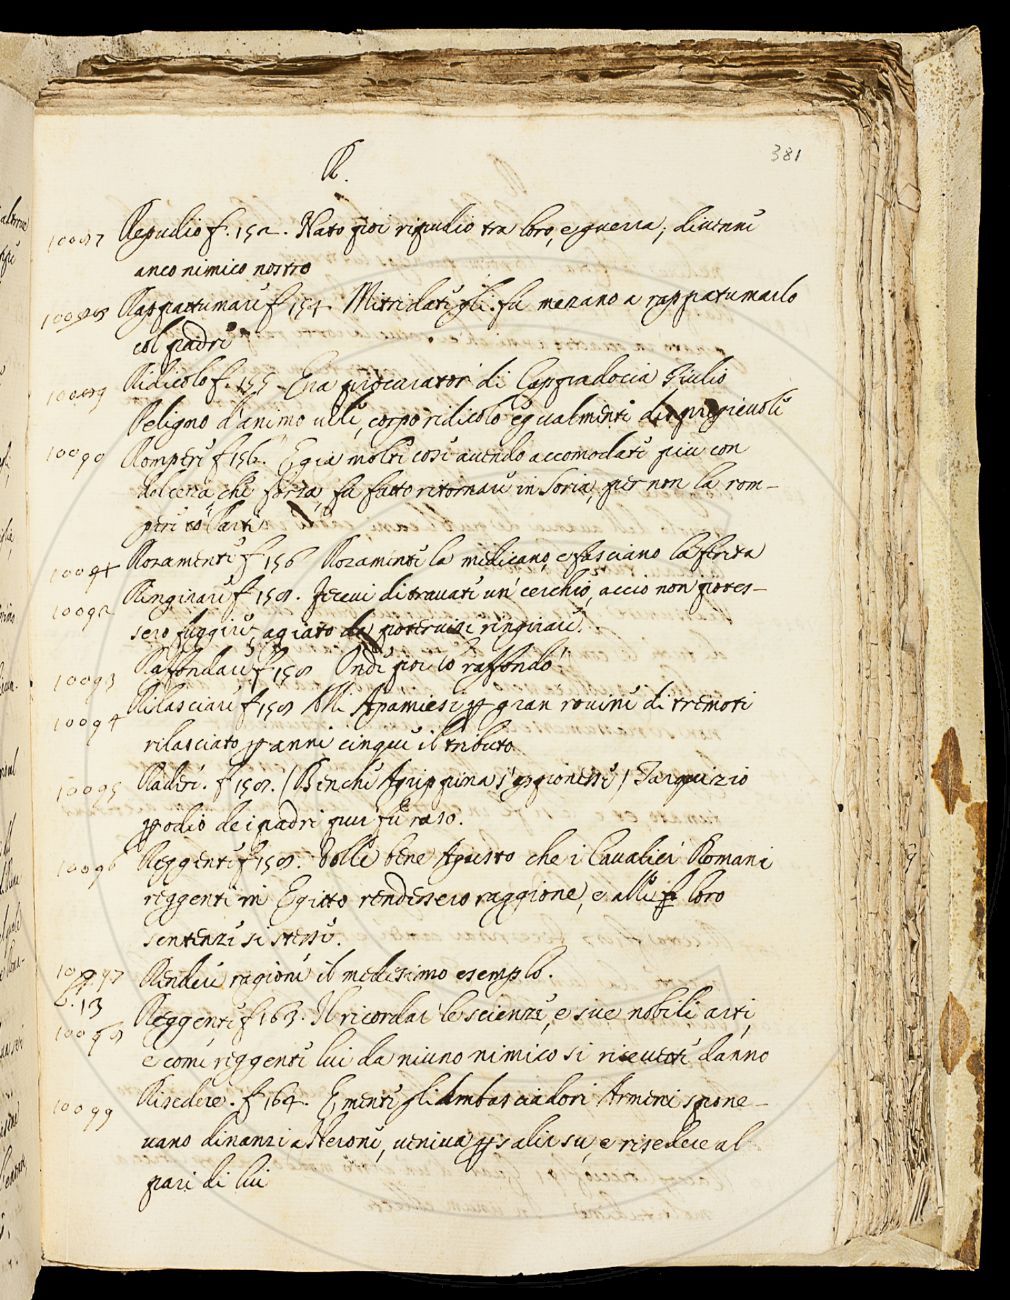 381
R.
10087 Repudio f. 152. Nato poi ripudio tra loro, e guerra, divenne
anco nimico nostro
10088 Rappattumare f 154. Mitridate gli fu mezano a rappatumarlo
col padre
10089 Ridicolo f. 155. Era procurator di Cappadocia Giulio
Peligno d'animo vile, corpo ridicolo egualmente dispregievole
10090 Rompere f 156. E gia molte cose avendo accomodate piu con
dolceza che forza, fu fatto ritornare in Soria, per non la rom-
pere co' Parti
10091 Rozamente f 156 Rozamente la medicano, e fasciano la ferita
10092 Ringirare f 158. Fecevi di travate un cerchio, accio non potes-
sero fuggire, agiato da potervisi ringirare.
10093 Raffondare f 158 Onde poi lo raffondò
10094 Rilasciare f 158 Alli Apamiesi p gran rovine di tremoti
rilasciato p anni cinque il tributo
10095 Radere. f 158. (Benche Agrippina s'opponesse) Tarquizio
p odio dei padri pur fu raso.
10096 Reggente f 158. Volle bene Agusto che i Cavalieri Romani
reggenti in Egitto rendessero raggione, e alle loro
sentenze si stesse.
10097 Rendere ragione il medesimo esemplo.
L. 13
10098 Reggente f 163. Il ricordar le scienze, e sue nobili arti,
e come reggente lui da niuno nimico si ricevette danno
10099 Risedere. f 164. E mentre gli Ambasciadori Armeni spone-
vano dinanzi a Nerone, veniva p salir su, e risedere al
pari di lui